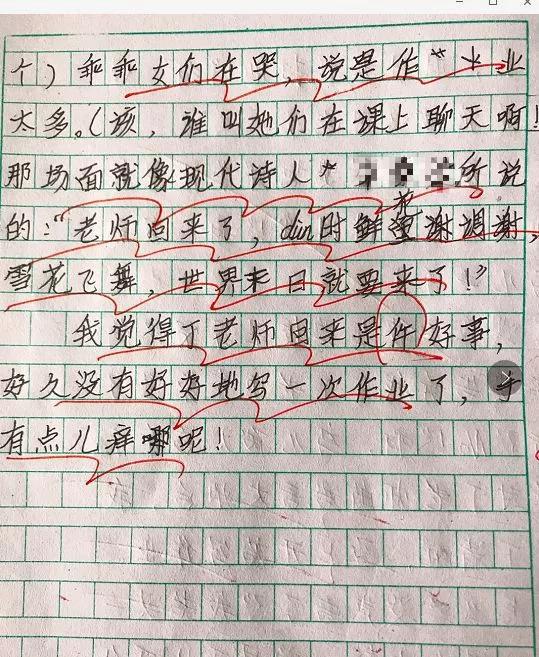 个）乖乖女们在哭，说是作**业业
太多。（该，谁叫她们在课上聊天啊！
那场面就像现代诗人*所说
的：“老师回来了，dun时鲜花凋谢，
雪花飞舞，世界末日就要来了！”
我觉得丁老师回来是件好事，
好久没有好好地写一次作业了，手
有点儿痒哪呢！